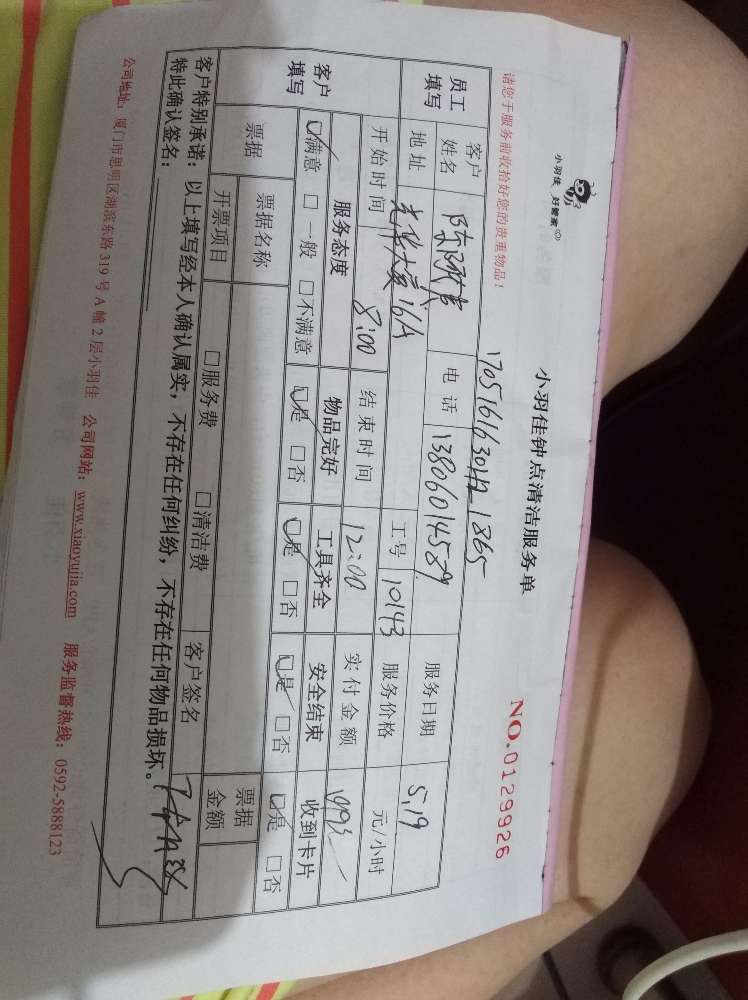 小羽佳 好管家
小羽佳钟点清洁服务单
NO.0129926
请您于服务前收拾好您的贵重物品！
员工填写 客户姓名 电话 13806014589 服务日期 5.19
地址 光华大厦16A 工号 10143 服务价格 元/小时
开始时间 8:00 结束时间 12:00 实付金额
客户填写 服务态度 物品完好 工具齐全 安全结束 收到卡片
☑满意 □一般 □不满意 ☑是 □否 ☑是 □否 ☑是 □否 ☑是 □否
票据 票据名称 票据金额
开票项目 □服务费 □清洁费 客户签名
客户特别承诺：以上填写经本人确认属实，不存在任何纠纷，不存在任何物品损坏。
特此确认签名：
公司地址：厦门市思明区湖滨东路319号A幢2层小羽佳 公司网站：www.xiaoyujia.com 服务监督热线：0592-5888123